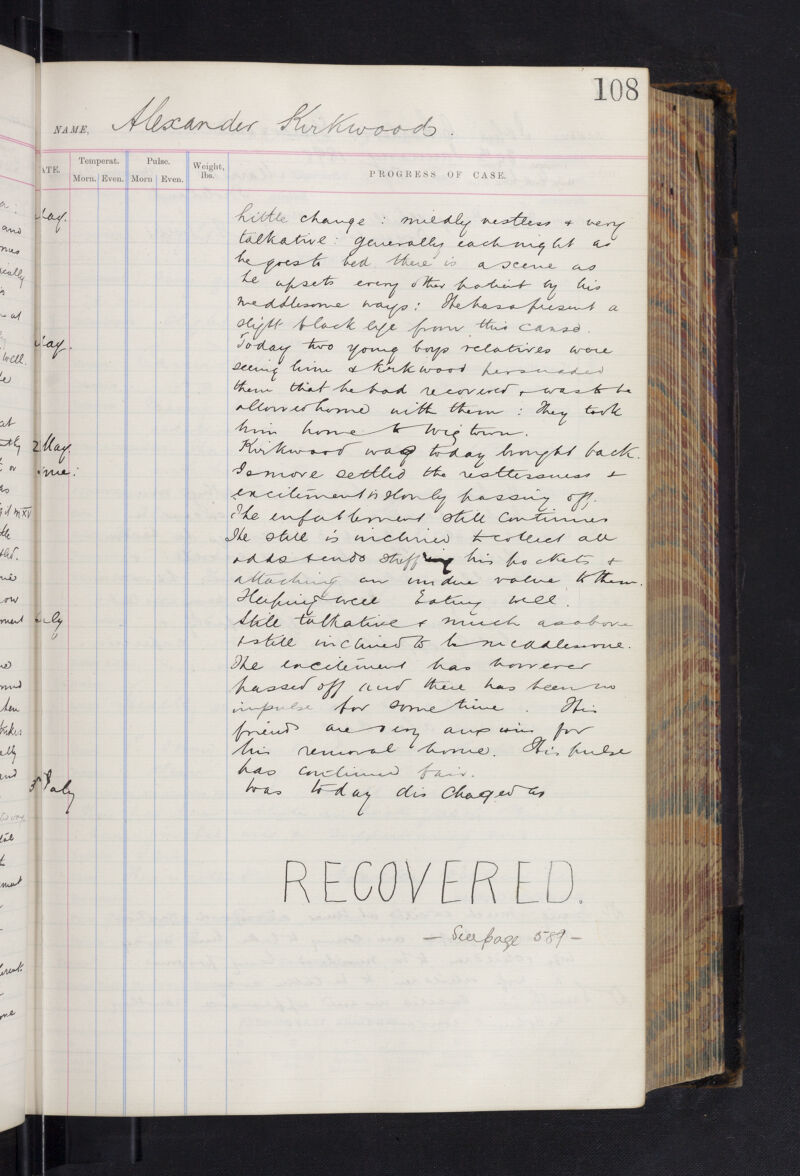 108
NAME, Alexander Kirkwood.
ATE. Temperat. Pulse. Weight, lbs. PROGRESS OF CASE.
Morn. Even. Morn Even.
May. Little change : mildly restless & very
talkative : generally each night as
he goes to bed there is a scene as
he upsets every other patient by his
meddlesome ways : He has at present a
slight black eye from this cause.
May. Today two young boys relatives were
seeing him & Kirkwood persuaded
them that he had recovered & was to be
allowed home with them : They took
him home to Wigtown.
2 May. Kirkwood was today brought back.
Is more settled the restlessness &
excitement is slowly passing off.
The enfeeblement still continues
He still is inclined to collect all
odds & ends stuffing his pockets &
attaching an undue value to them.
Sleeping well Eating well.
Still talkative & much as above
& still inclined to be meddlesome.
The excitement has however
passed off and there has been no
impulse for some time. His
friends are very anxious for
his removal home. His pulse
has continued fair.
July Was today dis chaged as
RECOVERED.
— See page 589 —